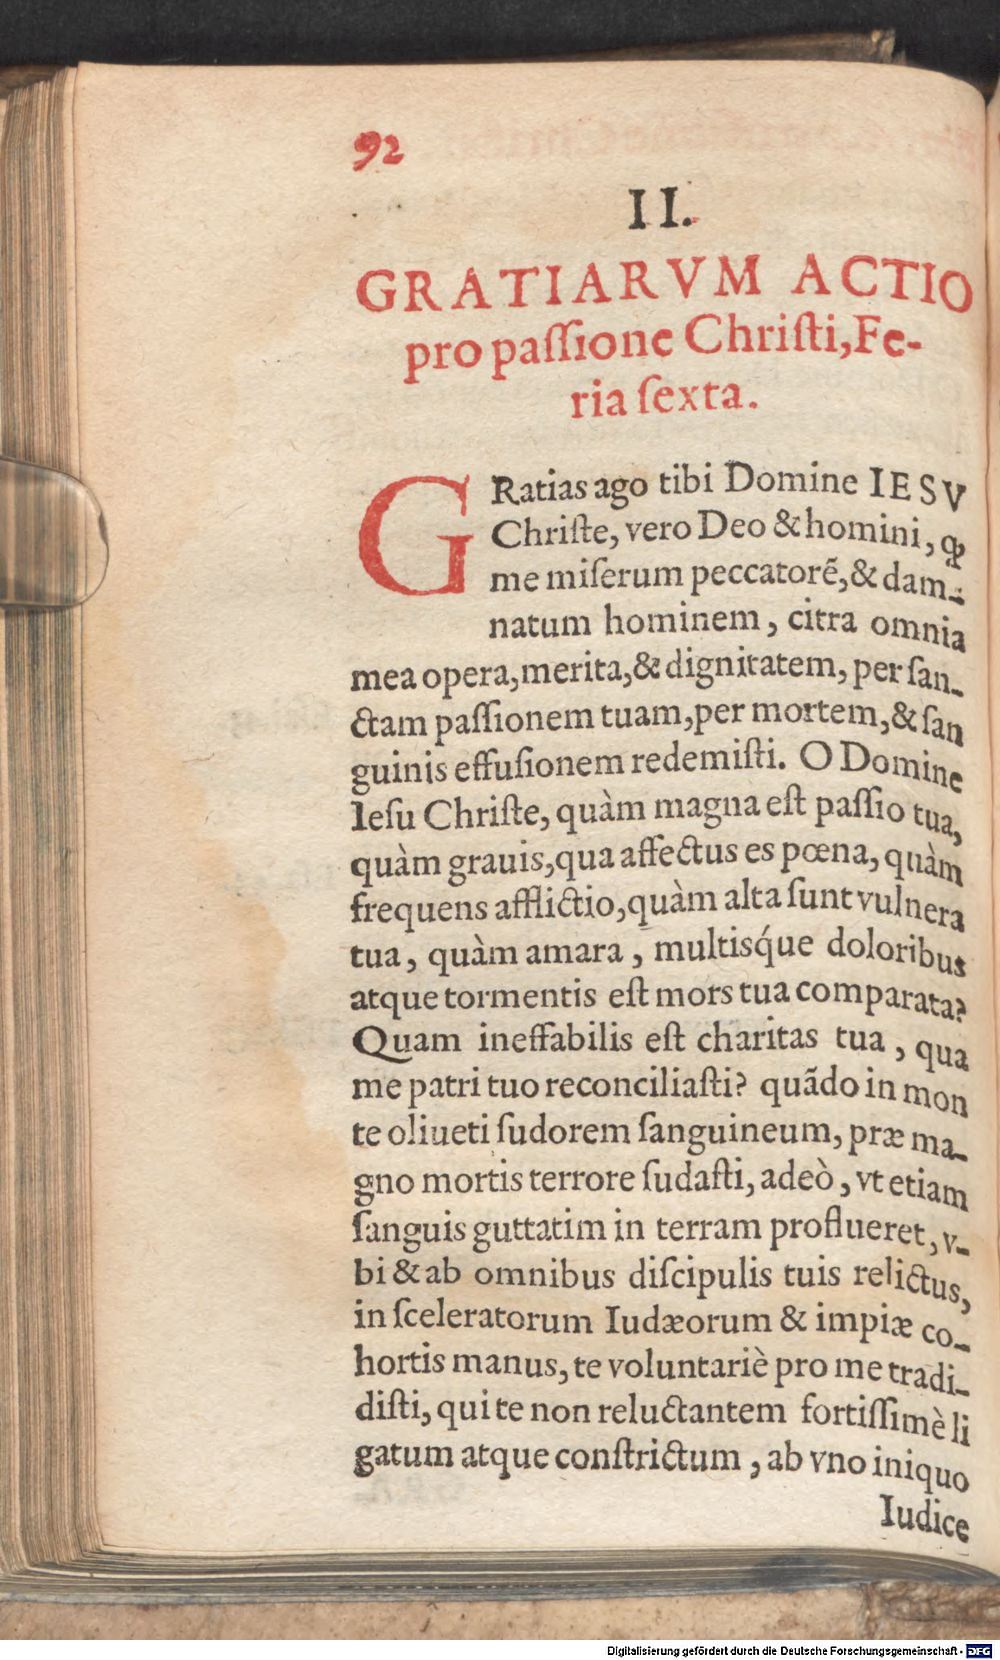 92
II.
GRATIARVM ACTIO
pro paſſione Chriſti, Fe-
ria ſexta.
GRatias ago tibi Domine IESV
Chriſte, vero Deo & homini, ꝙ
me miſerum peccatorẽ, & dam-
natum hominem, citra omnia
mea opera, merita, & dignitatem, per ſan-
ctam paſſionem tuam, per mortem, & ſan
guinis effuſionem redemiſti. O Domine
Ieſu Chriſte, quàm magna eſt paſſio tua,
quàm grauis, qua affectus es pœna, quàm
frequens afflictio, quàm alta ſunt vulnera
tua, quàm amara, multisq́ue doloribus
atque tormentis eſt mors tua comparata?
Quam ineffabilis eſt charitas tua, qua
me patri tuo reconciliaſti? quãdo in mon
te oliueti ſudorem ſanguineum, præ ma-
gno mortis terrore ſudaſti, adeò, vt etiam
ſanguis guttatim in terram proflueret, v-
bi & ab omnibus diſcipulis tuis relictus,
in ſceleratorum Iudæorum & impiæ co-
hortis manus, te voluntariè pro me tradi-
diſti, qui te non reluctantem fortiſſimè li
gatum atque conſtrictum, ab vno iniquo
Iudice
Digitalisierung gefördert durch die Deutsche Forschungsgemeinschaft - DFG